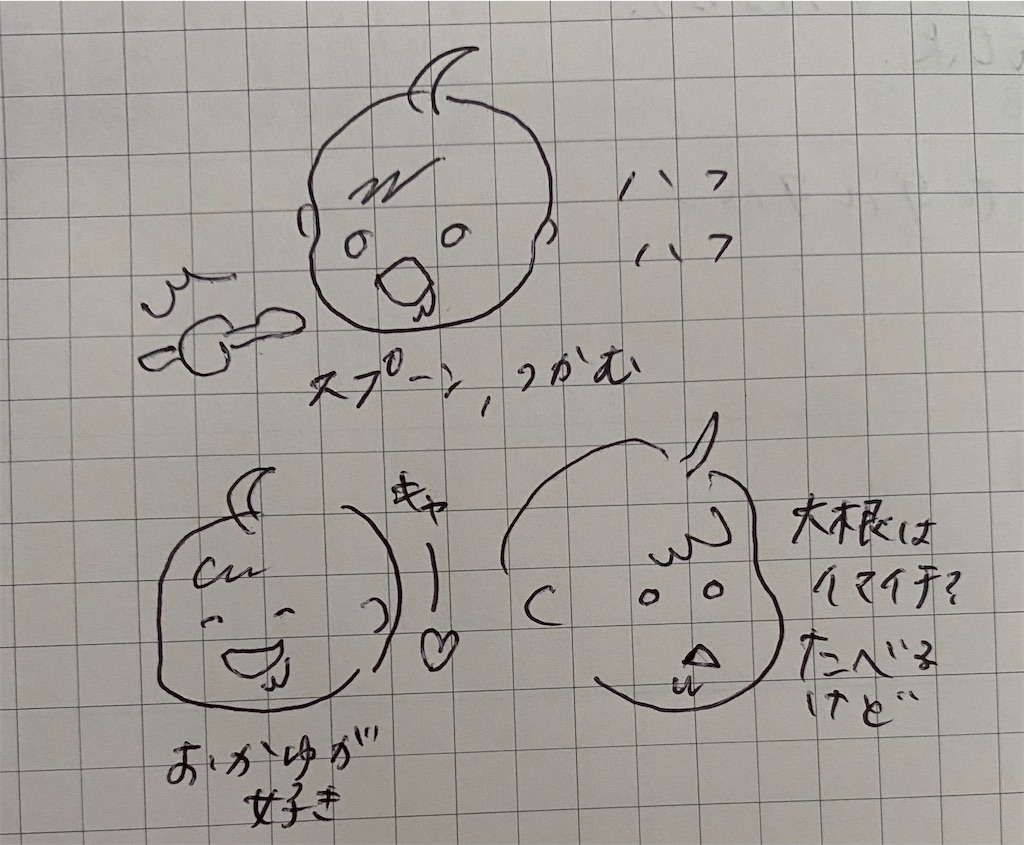 ハフ
ハフ
スプーン, つかむ
キャー♡
大根は
イマイチ?
たべる
けど
おかゆが
好き